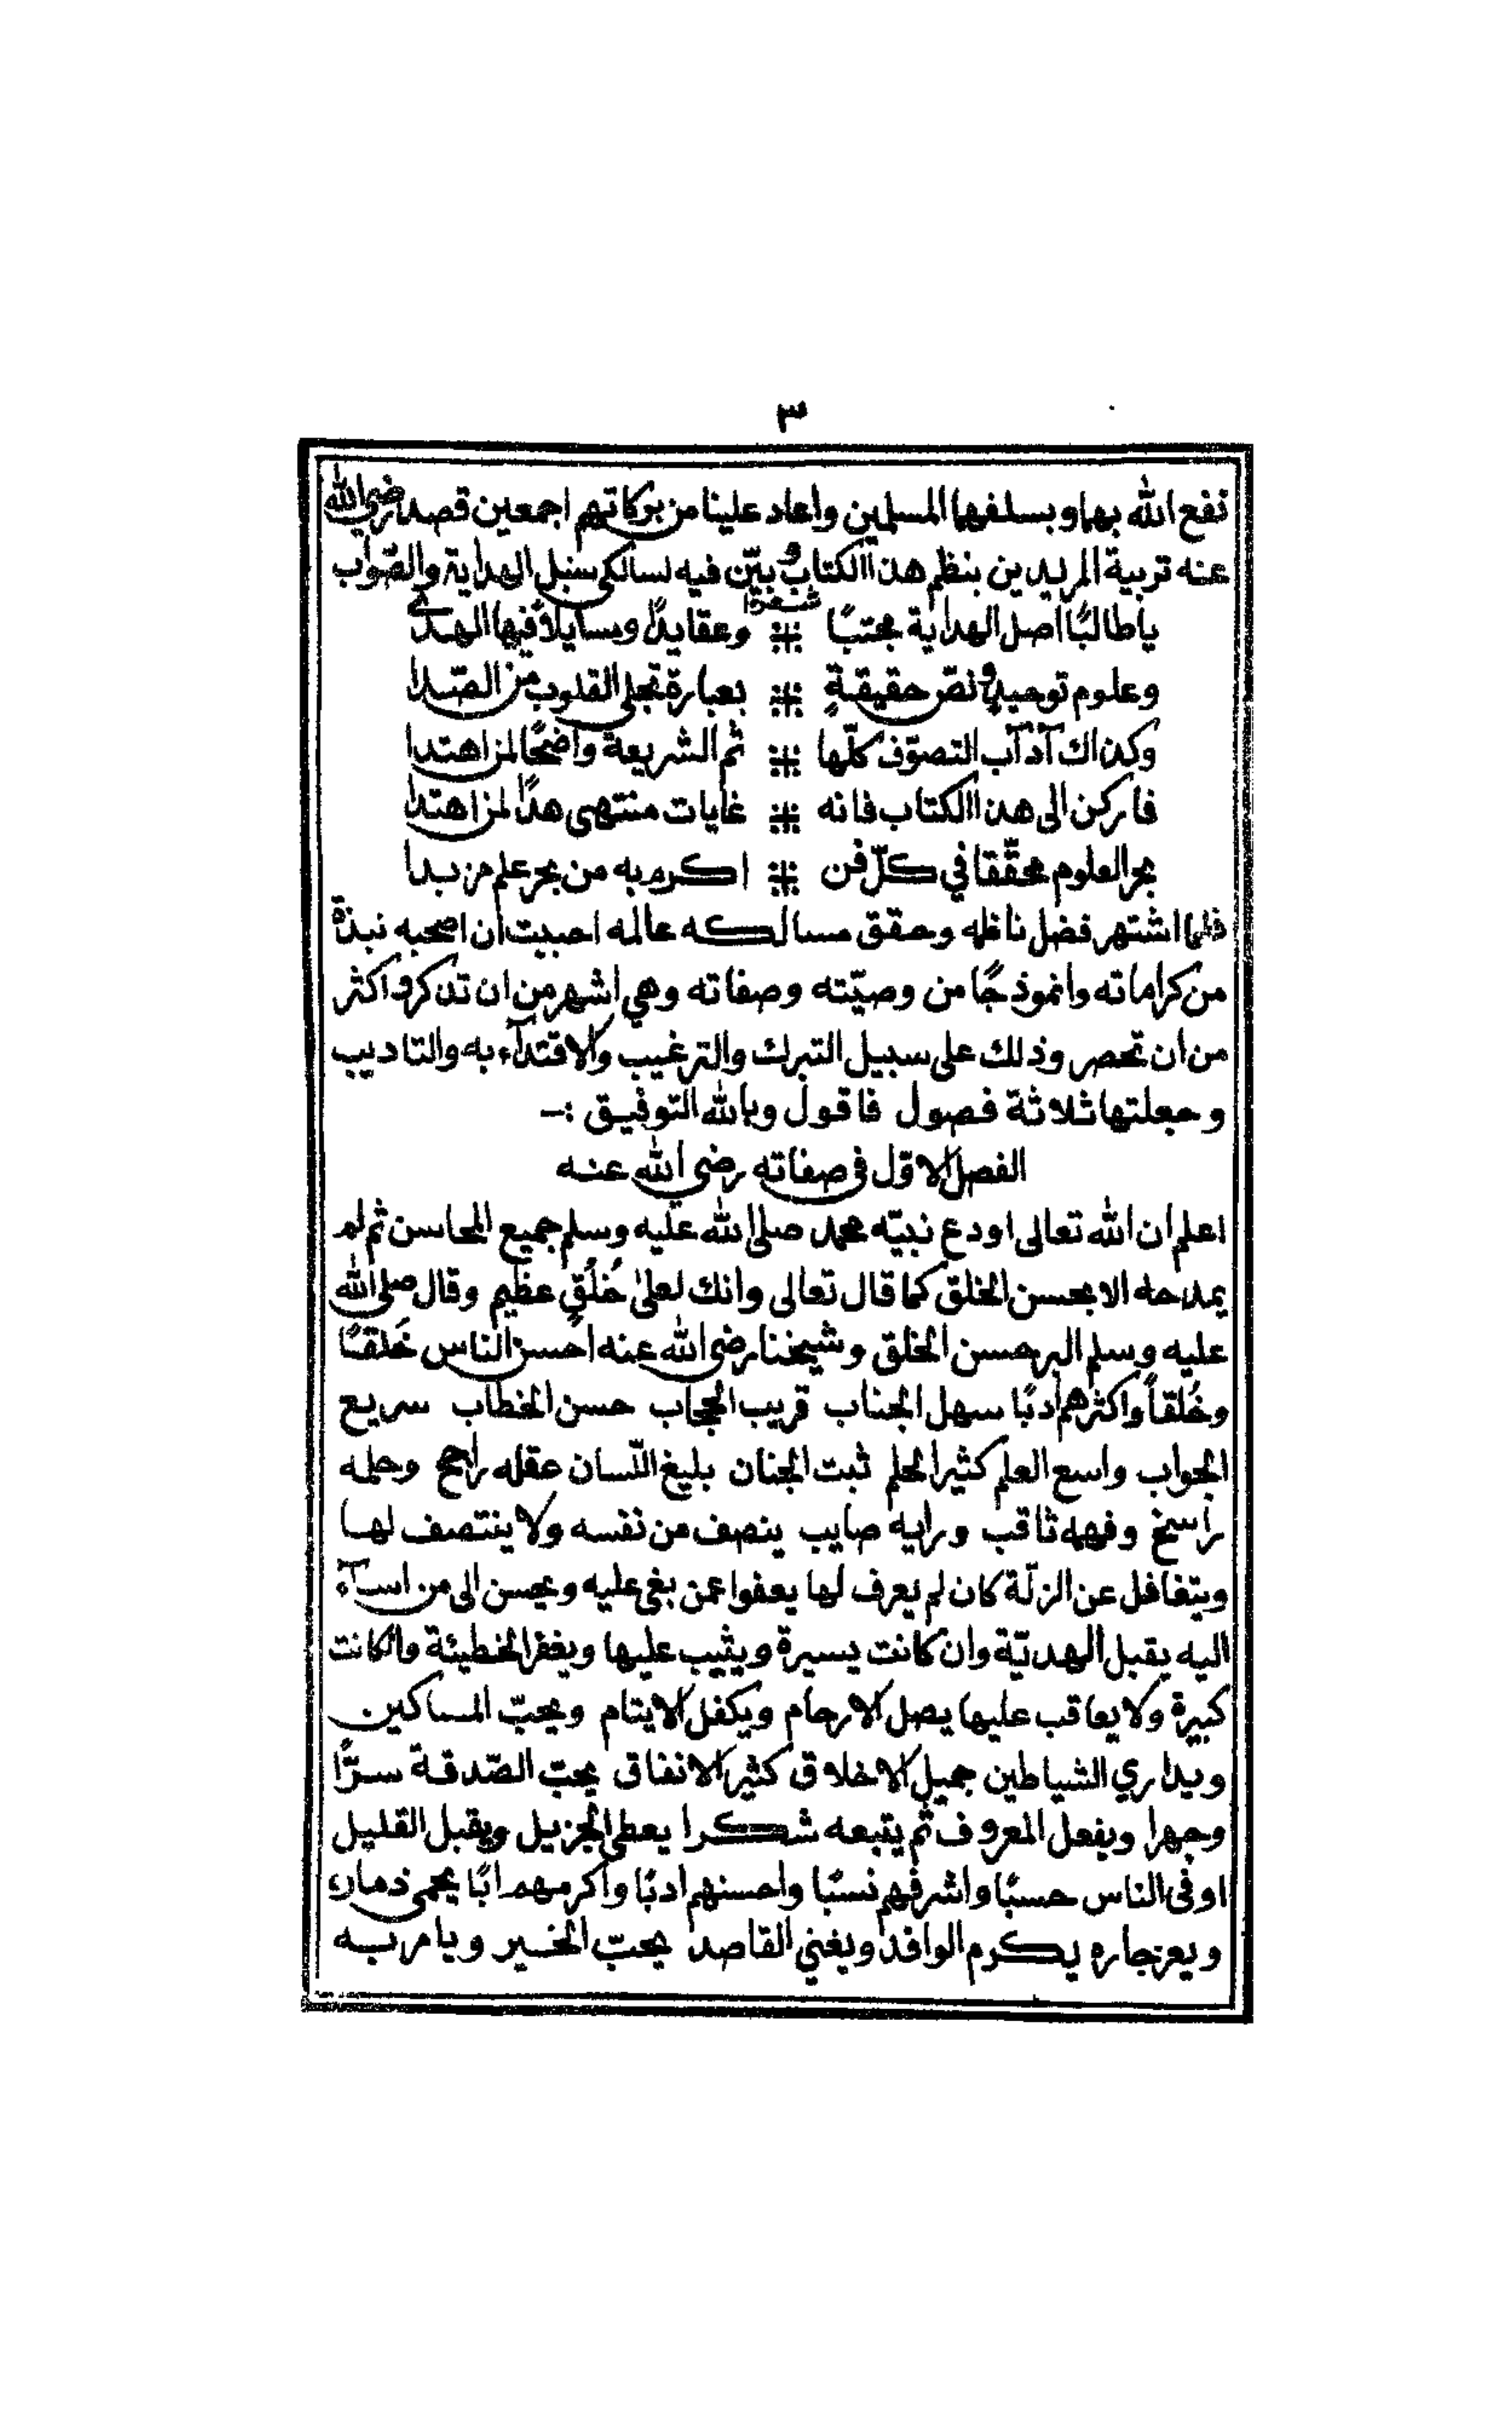 ٣
نفع الله بهما وبسلفهما المسلمين واعاد علينا من بركاتهم اجمعين قصد رضي الله
عنه تربية المريدين بنظم هذا الكتاب وبيّن فيه لسالكي سبل الهداية والصّواب
شعرا
ياطالبًا اصل الهداية مجتبًا ⁜ وعقايدًا ومسايلًا فيها الهدى
وعلوم توحيدٍ ونصّ حقيقةٍ ⁜ بعبارة تجلي القلوب من الصّدا
وكذاك آدآب التصوّف كلّها ⁜ ثم الشريعة واضحًا لمن اهتدا
فاركن الى هذا الكتاب فانه ⁜ غايات منتهى هدًا لمن اهتدا
بحر العلوم محقّقا في كلّ فن ⁜ اكرم به من بحر علم مزبدا
فلما اشتهر فضل ناظمه وحقق مسالكه عالمه احببت ان اصحبه نبذة
من كراماته وانموذجًا من وصيّته وصفاته وهي اشهر من ان تذكر واكثر
من ان تحصر وذلك على سبيل التبرك والترغيب والاقتدآء به والتاديب
وجعلتها ثلاثة فصول فاقول وبالله التوفيق :-
الفصل الاوّل في صفاته رضي الله عنه
اعلم ان الله تعالى اودع نبيّه محمد صلى الله عليه وسلم جميع المحاسن ثم لم
يمدحه الا بحسن الخلق كما قال تعالى وانك لعلىٰ خُلُقٍ عظيم وقال صلى الله
عليه وسلم البر حسن الخلق وشيخنا رضي الله عنه احسن الناس خَلقًا
وخُلقاً واكثرهم ادبًا سهل الجناب قريب الحجاب حسن الخطاب سريع
الجواب واسع العلم كثير الحلم ثبت الجنان بليغ اللّسان عقله راجح وحلمه
راسخ وفهمه ثاقب ورايه صايب ينصف من نفسه ولا ينتصف لها
ويتغافل عن الزلّة كان لم يعرف لها يعفوا عمن بغى عليه ويحسن الى من اسآء
اليه يقبل الهديّة وان كانت يسيرة ويثيب عليها ويغفر الخطيئة وان كانت
كبيرة ولا يعاقب عليها يصل الارحام ويكفل الايتام ويحبّ المساكين
ويداري الشياطين جميل الاخلاق كثير الانفاق يحبّ الصّدقة سرًّا
وجهرا ويفعل المعروف ثم يتبعه شكرا يعطي الجزيل ويقبل القليل
اوفى الناس حسبًا واشرفهم نسبًا واحسنهم ادبًا واكرمهم ابًا يحمي ذماره
ويعز جاره يكرم الوافد ويغني القاصد يحبّ الخير ويامر به